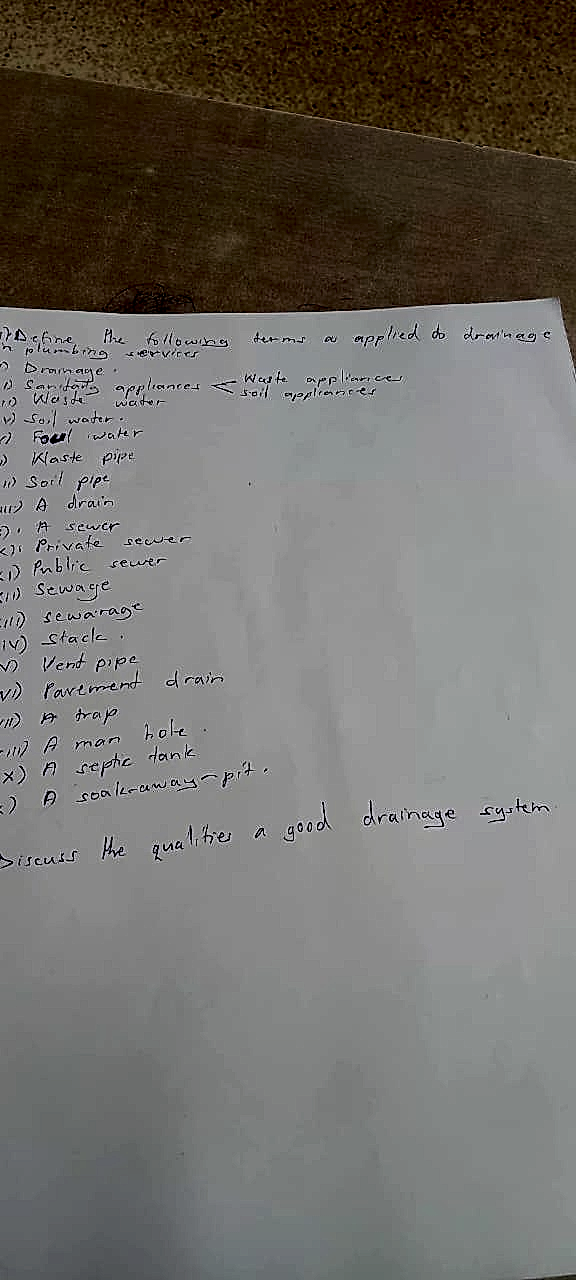 Define the following terms as applied to drainage
n plumbing services
) Drainage.
i) Sanitary appliances < Waste appliances
soil appliances
ii) Waste water
v) Soil water.
) Foul water
) Waste pipe
ii) Soil pipe
iii) A drain
). A sewer
x). Private sewer
xi) Public sewer
ii) Sewage
iii) sewarage
iv) Stack.
v) Vent pipe
vi) Pavement drain
ii) A trap
iii) A man hole.
x) A septic tank
) A soak-away-pit.
Discuss the qualities a good drainage system.